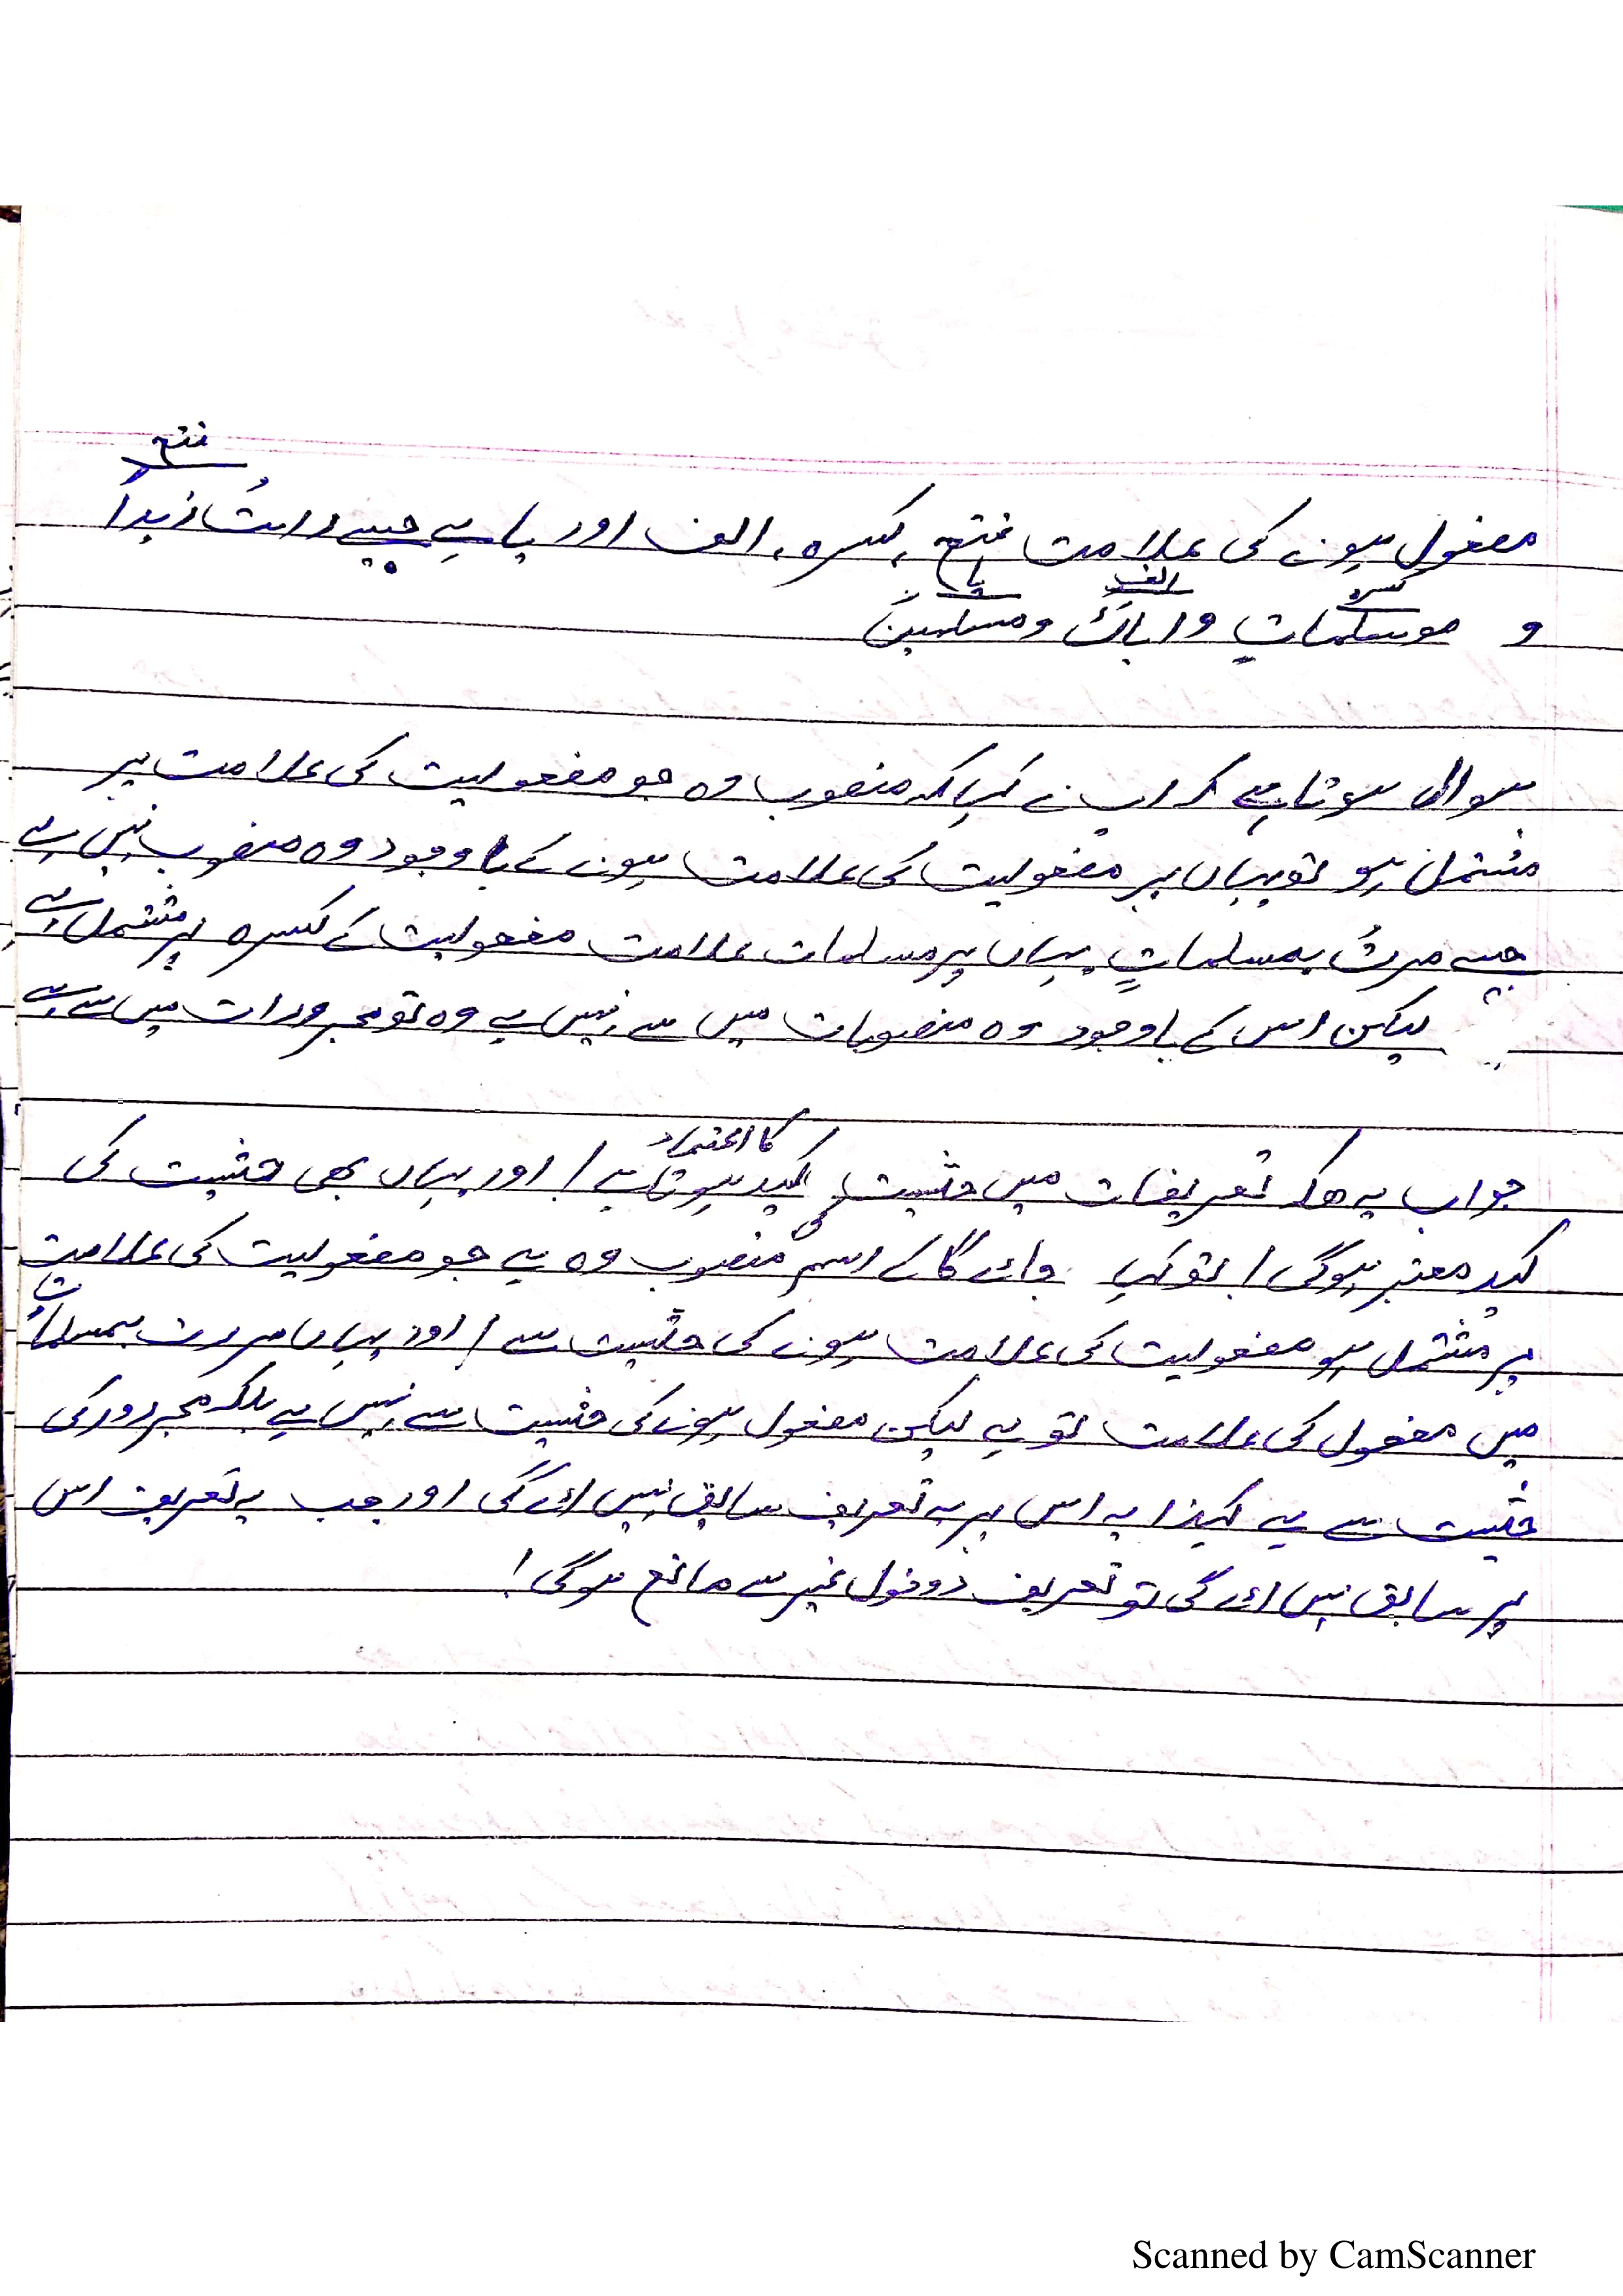 فتحہ
مفعول ہونے کی علامت فتحہ، کسرہ، الف اور یا ہے جیسے رایتُ زیداً
کسرہ الف یا
و موسلماتٍ و اباکَ و مسلمینَ
سوال ہوتا ہے کہ اپ نے کہا کہ منصوب وہ جو مفعولیت کی علامت پر
مشتمل ہو تو یہاں پر مفعولیت کی علامت ہونے کے باوجود وہ منصوب نہیں ہے
جیسے مررتُ بمسلماتٍ یہاں پر مسلمات علامت مفعولیت کے کسرہ پر مشتمل ہے
لیکن اس کے باوجود وہ منصوبات میں سے نہیں ہے وہ تو مجرورات میں سے ہے
کا اعتماد
جواب یہ ھکہ تعریفات میں حثیت کید ہوتا ہے! اور یہاں بھی حثیت کی
کید معتبر ہوگی! تو کہا جائے گا کے اسم منصوب وہ ہے جو مفعولیت کی علامت
پر مشتمل ہو مفعولیت کی علامت ہونے کی حثیت سے! اور یہاں مررت بمسلماتٍ
میں مفعول کی علامت تو ہے لیکن مفعول ہونے کی حثیت سے نہیں ہے بلکہ مجرور کی
حثیت سے ہے لہذا یہ اس پر یہ تعریف سابق نہیں ائے گی اور جب یہ تعریف اس
پر سابق نہیں ائے گی تو تعریف دوخول غیر سے مانع ہوگی!
Scanned by CamScanner